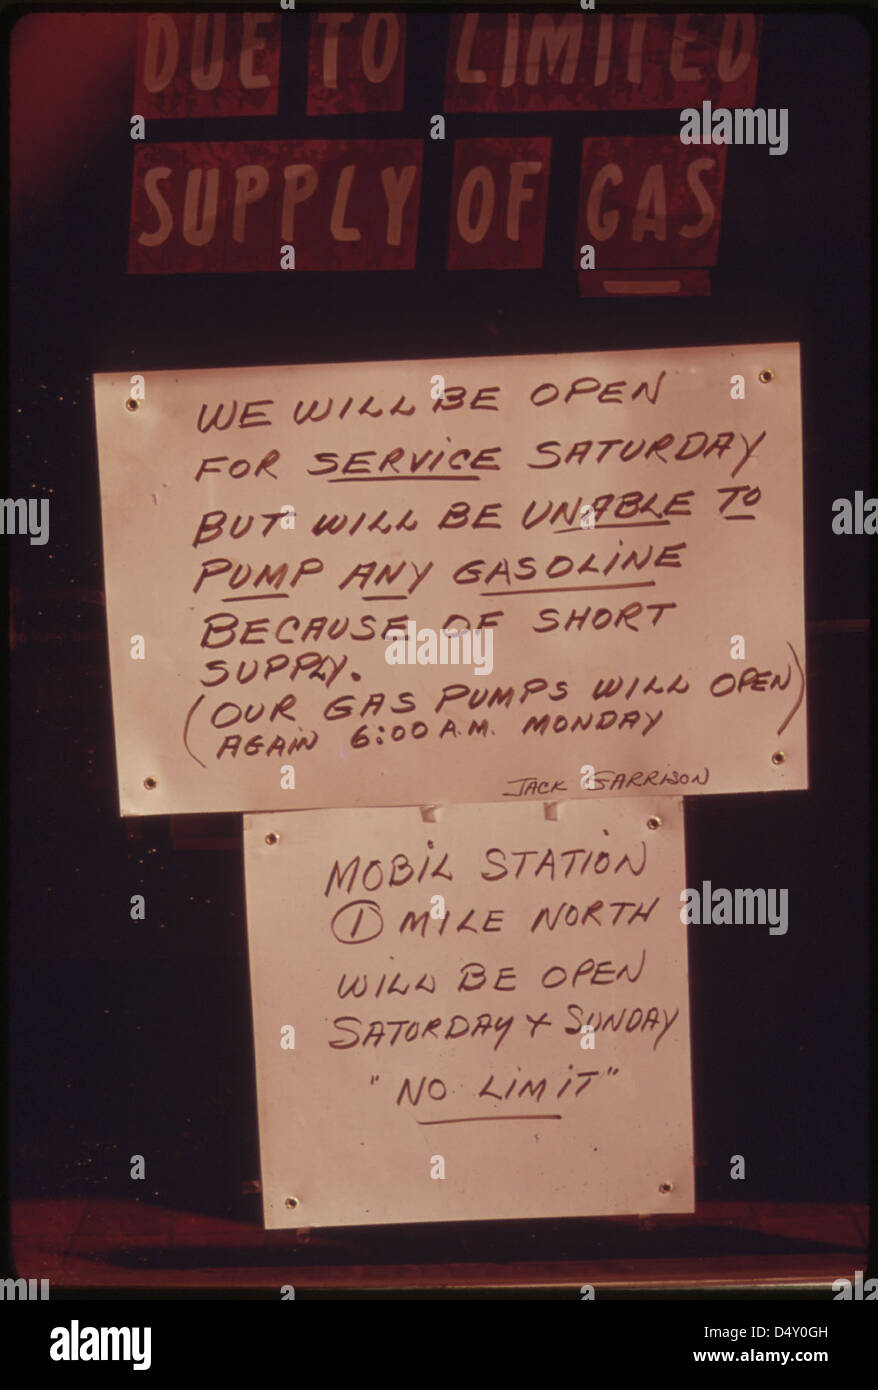 DUE TO LIMITED
SUPPLY OF GAS
WE WILL BE OPEN
FOR SERVICE SATURDAY
BUT WILL BE UNABLE TO
PUMP ANY GASOLINE
BECAUSE OF SHORT
SUPPLY.
(OUR GAS PUMPS WILL OPEN
AGAIN 6:00 A.M. MONDAY)
JACK GARRISON
MOBIL STATION
1 MILE NORTH
WILL BE OPEN
SATURDAY + SUNDAY
"NO LIMIT"
alamy
alamy
alamy
a
alamy
Image ID: D4Y0GH
www.alamy.com